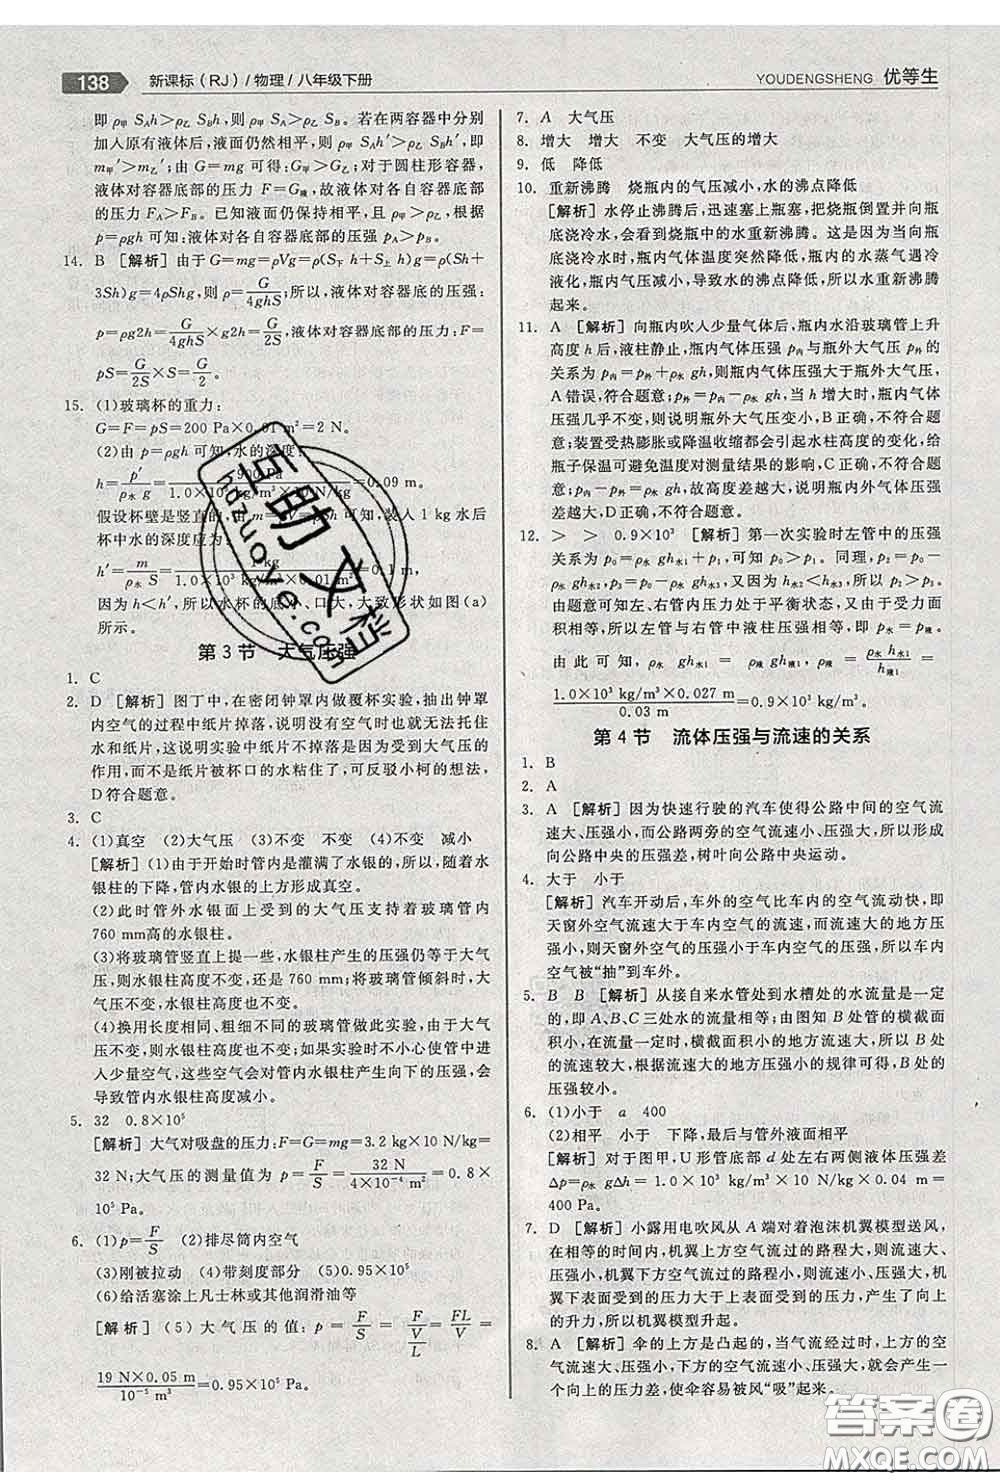 138 新课标(RJ)/物理/八年级下册
YOUDENGSHENG 优等生
即 ρ甲 S_A h＞ρ乙 S_B h,则 ρ甲 S_A＞ρ乙 S_B。若在两容器中分别
加入原有液体后,液面仍然相平,则 ρ甲 S_A h′＞ρ乙 S_B h′,即
m甲′＞m乙′;由 G=mg 可得:G甲＞G乙;对于圆柱形容器,
液体对容器底部的压力 F=G液,故液体对各自容器底部
的压力 F_A＞F_B。已知液面仍保持相平,根据
p=ρgh 可知:液体对各自容器底部的压强 p_A＞p_B。
14. B [解析]由于 G=mg=ρVg=(S下 h+S上 h)ρg=(Sh+
3Sh)ρg=4ρShg,则 ρ=G/4ghS;所以,液体对容器底的压强:
p=ρg2h=G/4ghS×g2h=G/2S,液体对容器底部的压力:
pS=G/2S×S=G/2。
15. (1)玻璃杯的重力:
G=F=pS=200 Pa×0.01 m²=2 N。
(2)由 p=ρgh 可知,水的深度:
h=p′/ρ水 g=900 Pa/1.0×10³ kg/m³×10 N/kg=0.09 m。
假设杯壁是竖直的,由 m=ρV=ρSh 可知,装入 1 kg 水后
杯中水的深度应为:
h′=m/ρ水 S=1 kg/1.0×10³ kg/m³×0.01 m²=0.1 m,
因为 h＜h′,所以水杯的底小、口大,大致形状如图(a)
所示。
第 3 节 大气压强
1. C
2. D [解析]图丁中,在密闭钟罩内做覆杯实验,抽出钟罩
内空气的过程中纸片掉落,说明没有空气时就无法托住
水和纸片,这说明实验中纸片不掉落是大气压的作用,
而不是纸片被杯口的水粘住了,可反驳小柯的想法,
D 符合题意。
3. C
4. (1)真空 (2)大气压 (3)不变 不变 (4)不变 减小
[解析](1)由于开始时管内是灌满了水银的,所以,随着水
银柱的下降,管内水银的上方形成真空。
(2)此时管外水银面上受到的大气压支持着玻璃管内
760 mm高的水银柱。
(3)将玻璃管竖直向上提一些,水银柱产生的压强仍等于大
气压强,则高度差不变,还是 760 mm;将玻璃管倾斜时,大
气压不变,水银柱高度差不变。
(4)换用长度相同、粗细不同的玻璃管做此实验,由于大气
压不变,则水银柱高度不变;如果实验中不小心,使玻璃管中
混入少量空气,这些空气对水银柱产生向下的压强,会
导致管内水银柱高度减小。
5. 32 0.8×10⁵
[解析]大气对吸盘的压力:F=G=mg=3.2 kg×10 N/kg=
32 N;大气压的值约为 p=F/S=32 N/4×10⁻⁴ m²=0.8×
10⁵ Pa。
6. (1)p=F/S (2)排尽筒内空气
(3)刚被拉动 (4)带刻度部分 (5)0.95×10⁵
(6)给活塞涂上凡士林(或其他润滑油)等
[解析](5)大气压的值:p=F/S=F/(V/L)=FL/V=
19 N×0.05 m/10⁻⁵ m³=0.95×10⁵ Pa。
7. A 大气压
8. 增大 增大 不变 大气压的增大
9. 低 降低
10. 重新沸腾 烧瓶内的气压减小,水的沸点降低
[解析]水停止沸腾后,迅速塞上瓶塞,把烧瓶倒置并向瓶
底浇冷水,会看到烧瓶内的水重新沸腾。这是因为向瓶
底浇冷水后,瓶内气体温度突然降低,瓶内的水蒸气遇冷
液化,瓶内气压减小,导致水的沸点降低,所以水重新沸腾
起来。
11. A [解析]向瓶内吹入少量气体后,瓶内水沿玻璃管上升
高度 h 后,液柱静止,瓶内气体压强 p内与瓶外大气压 p外
的关系为 p内=p外+ρ水 gh,所以瓶内气体压强大于瓶外大气压,
A 错误,符合题意;p外=p内-ρ水 gh,当 h 增大时,瓶内气体
压强几乎不变,则说明瓶外大气压变小,B 正确,不符合题
意;装置受热膨胀或降温收缩都会引起水柱高度的变化,给
瓶子保温可避免温度对测量结果的影响,C正确,不符合题
意;p内-p外=ρ水 gh,故高度差越大,说明瓶内外的大气压差越
大,D 正确,不符合题意。
12. ＞ ＞ 0.9×10³ [解析]第一次实验时左管中的压强
关系为:p₀=ρ水 gh水1+p₁,可知 p₀＞p₁。同理,p₀-
ρ水 gh水1=p₁,p₀-ρ水 gh水2=p₃,h水1＜h水2,所以 p₁＞p₃。
由题意可知左、右管内压力处于平衡状态,又由于受力面
积相同,所以左管与右管中液柱压强相等,即 p水=p液。
由此可知,ρ水 gh水1=ρ液 gh液1,所以 ρ液=ρ水 h水1/h液1=
1.0×10³ kg/m³×0.027 m/0.03 m=0.9×10³ kg/m³。
第 4 节 流体压强与流速的关系
1. B
2. A
3. A [解析]因为快速行驶的汽车使得公路中间的空气流
速大、压强小,而公路两旁的空气流速小、压强大,所以形成
向公路中央的压强差,树叶向公路中央运动。
4. 大于 小于
[解析]汽车开动后,车外的空气比车内的空气流动快,即
天窗外空气流速大于车内空气的流速,而流速大的地方压
强小,则天窗外空气的压强小于车内空气的压强,车内
空气被“抽”到车外。
5. B B [解析]从接自来水管处到水槽处的水流量是一定
的,即 A、B、C 三处水的流量相等;由图知 B 管的横截面
积小,在流量相等时,横截面积小的流速大,所以 B 处的流
速大;根据流体流速大的地方压强小的规律可得,B 处的
压强较小。
6. (1)小于 a 400
(2)相平 小于 下降,最后与管外液面相平
[解析]对于图甲,U 形管底部 d 处左右两侧液体压强差
Δp=ρ水 gΔh=1.0×10³ kg/m³×10 N/kg×0.04 m=
400 Pa。
7. D [解析]小露用电吹风从 A 端对着泡沫机翼模型送风,
在相等时间内,机翼上面空气流过的路程大,流速大、
压强小,机翼下方空气流过的路程小,流速小、压强大,
向上的压强大于向下的压强,产生向上的压强差,机翼受到
的向上压力大于上表面受到的向下压力,产生了向上
的升力,所以机翼模型会上升。
8. A [解析]伞的上方是凸起的,当气流经过时,上方的空气
流速大、压强小,下方的空气流速小、压强大,伞受到一
个向上的压力差,使伞容易被风“吸”起来。
互助文档
hdzuoye.com
答案圈
MXQE.COM